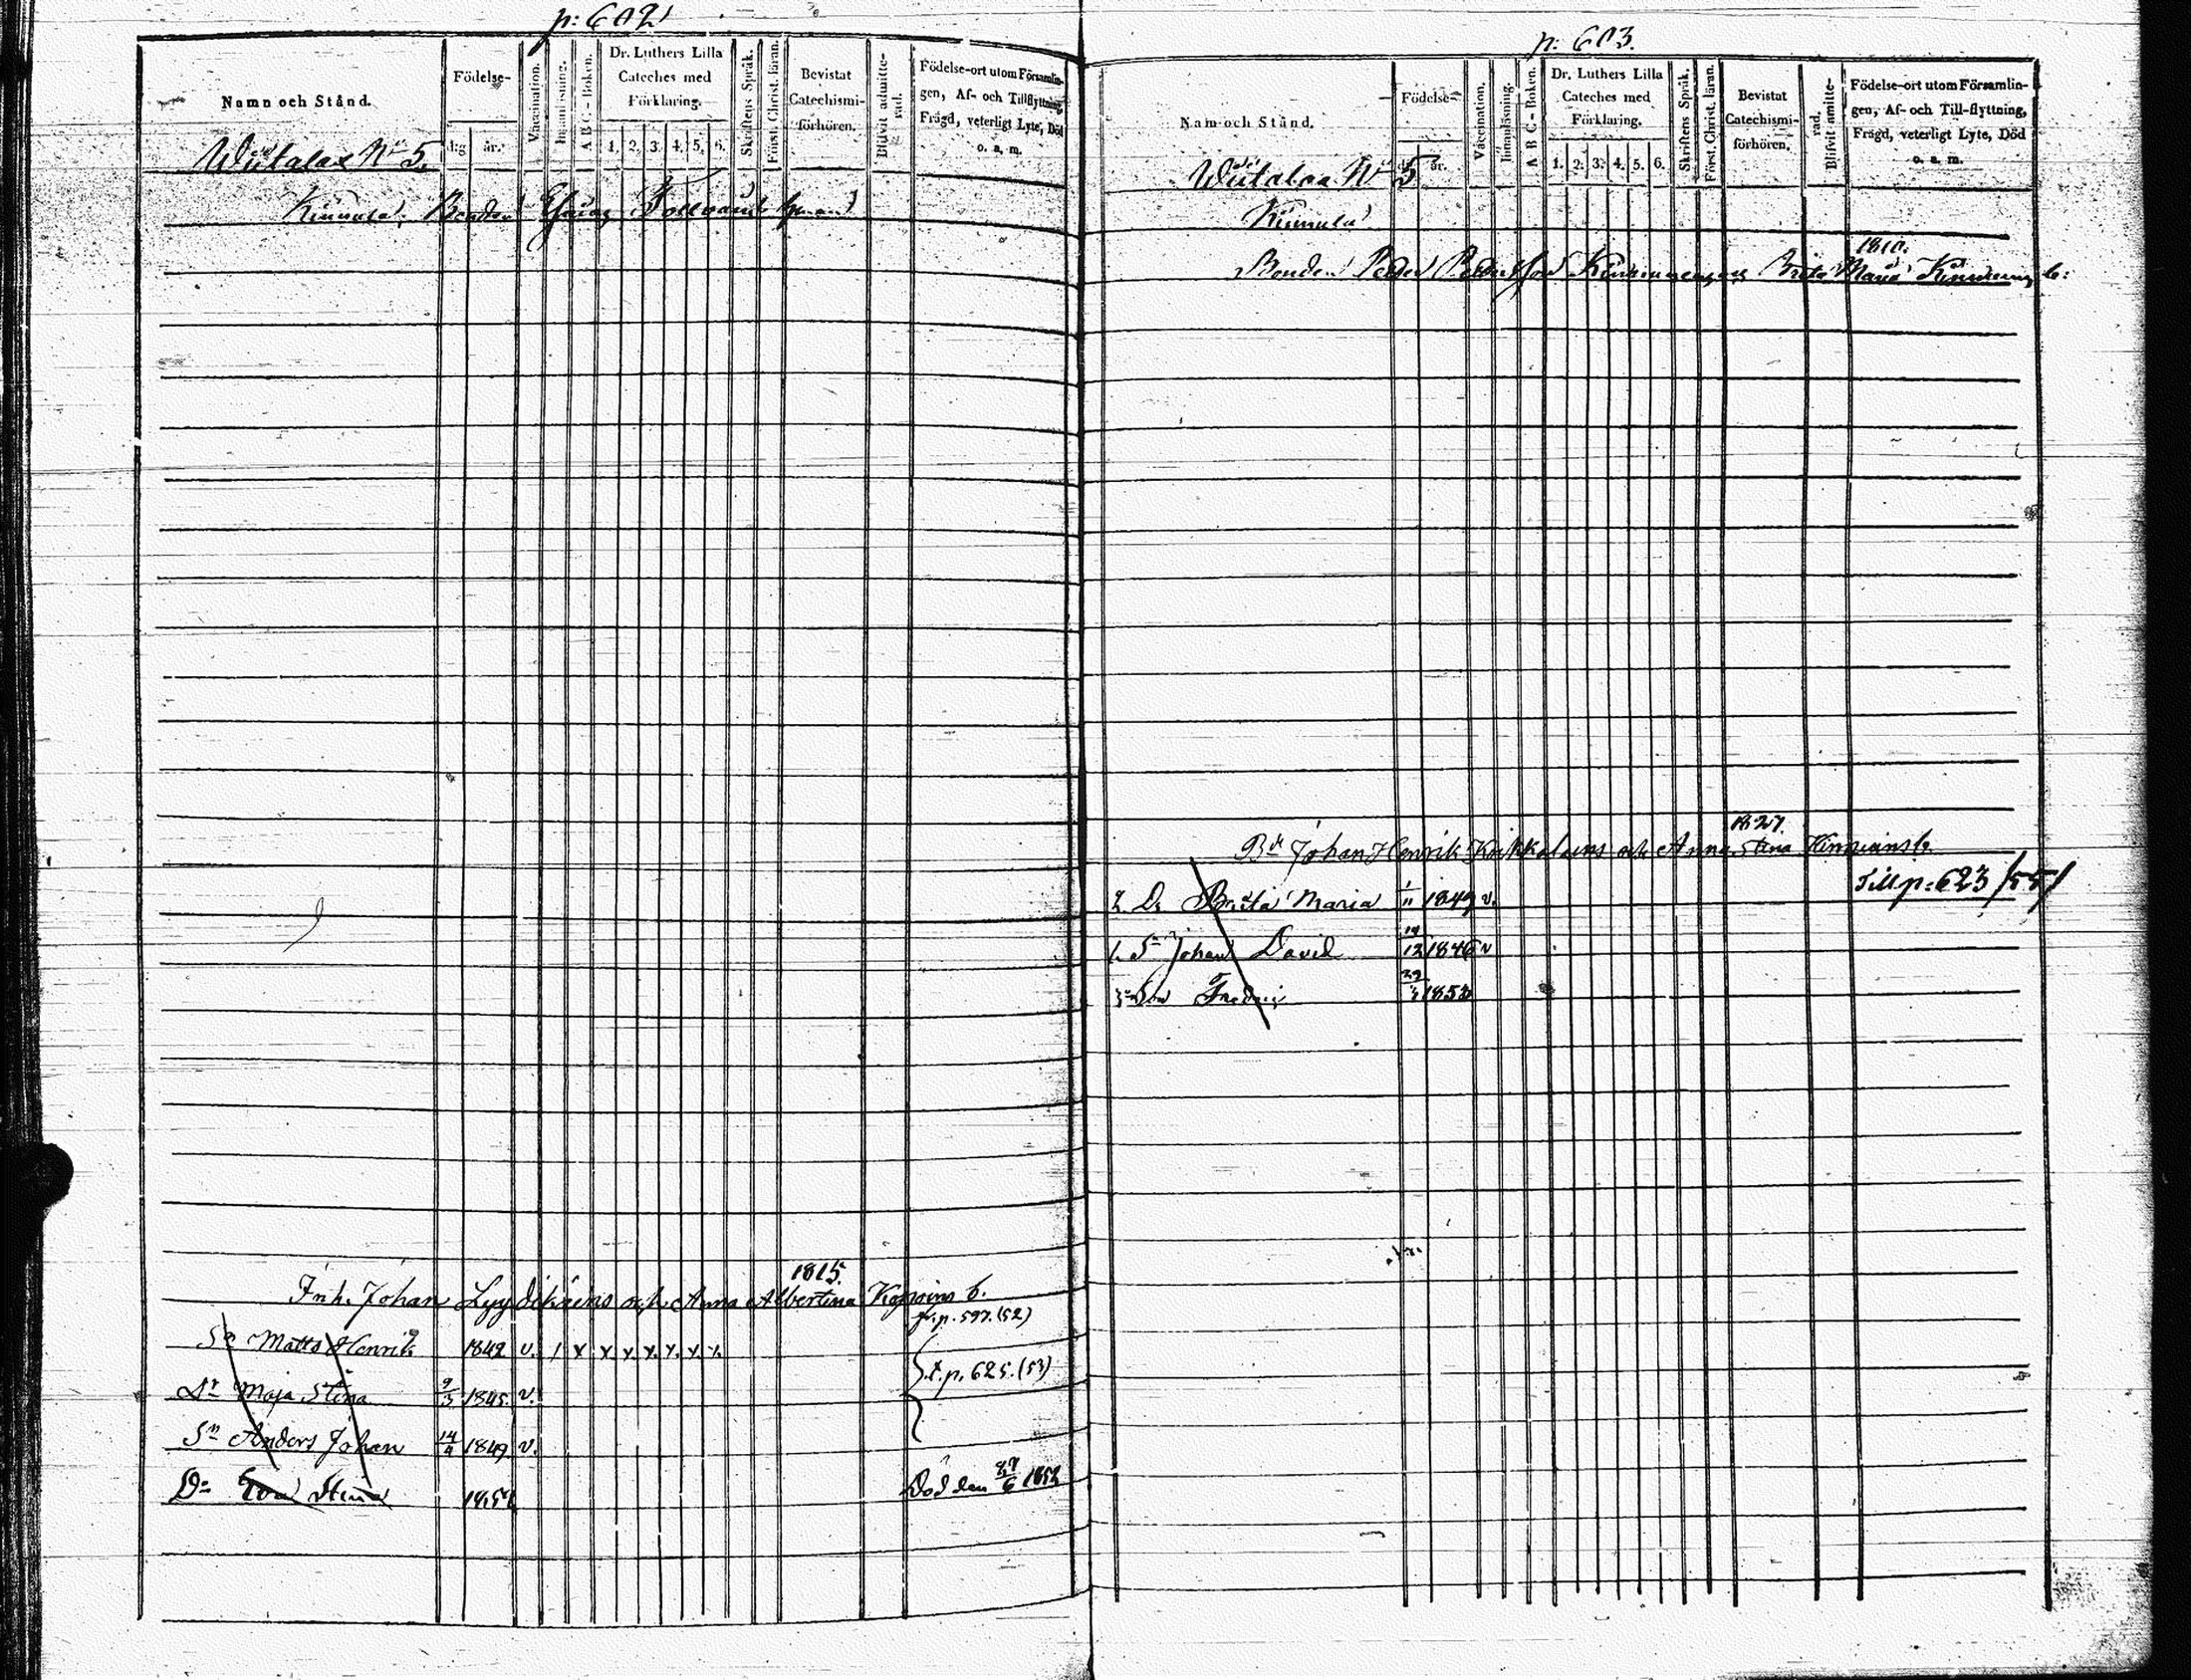 p: 602
Namn och Stånd.
Födelse-
dag
år.
Vaccination.
Innanläsning.
A B C - Boken.
Dr. Luthers Lilla
Cateches med
Förklaring.
1. 2. 3. 4. 5. 6.
Skriftens Språk.
Först. Christ. läran.
Bevistat
Catechismi-
förhören.
Blifvit admitte-
rad.
Födelse-ort utom Församlin-
gen, Af- och Tillflyttning,
Frägd, veterligt Lyte, Död
o. a. m.
Wiitalax No 5.
Kinnula, Bonden
Inh. Johan Lyydikäins och Anna Albertina Kopoins b.
1815.
fr. p. 597. (52)
Sn Matts Henrik 1842 v. / x x x. x. x. x. x.
t. p. 625. (53)
Dr Maja Stina 9/3 1845. v.
Sn Anders Johan 14/4 1849 v.
Dr Eva Stina 1851
Död den 6 1852
p: 603.
Namn och Stånd.
Födelse-
år.
Vaccination.
Innanläsning.
A B C - Boken.
Dr. Luthers Lilla
Cateches med
Förklaring.
1. 2. 3. 4. 5. 6.
Skriftens Språk.
Först. Christ. läran.
Bevistat
Catechismi-
förhören.
rad.
Blifvit admitte-
Födelse-ort utom Församlin-
gen, Af- och Till-flyttning,
Frägd, veterligt Lyte, Död
o. a. m.
Wiitalax No 5
Kinnula
1810.
Bonden Peder Pedersson Kinnunen och Brita Maria b:
1827.
Bd Johan Henrik Krikkolains och Anna Stina Kinnuinsb.
Till p: 623 /55/
2. Dr Brita Maria 1/11 1849 v.
1. Sn Johan David 14/12 1846 v
3. Son Fredric 29/3 1853